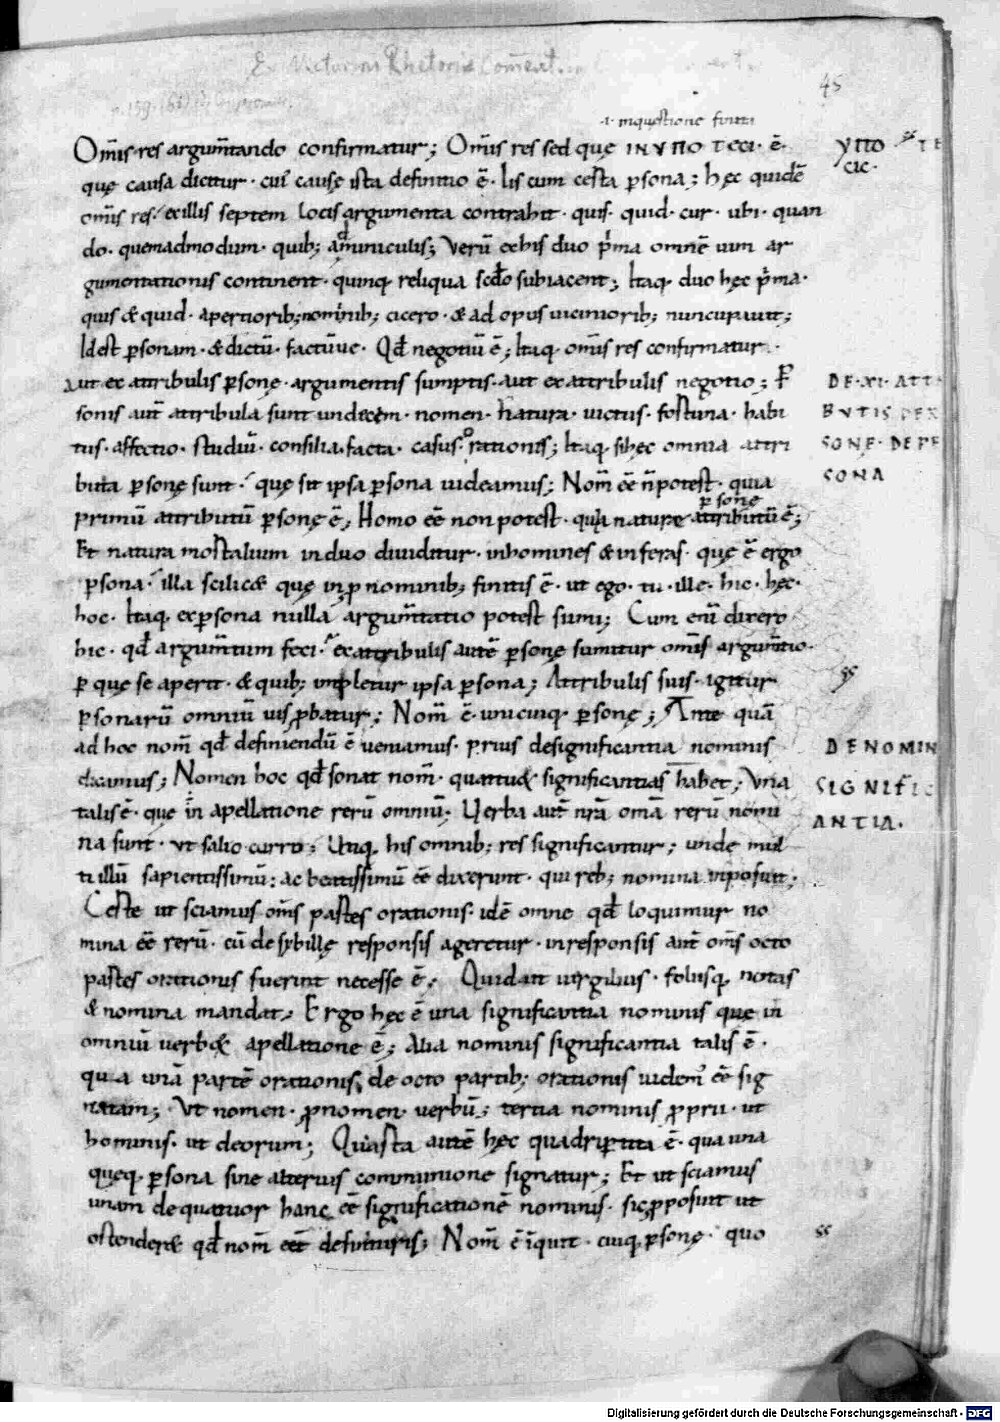 Ex Victorini Rhetoris Com̄ent.
45
.i. in questione finiti
Om̄is res argum̄tando confirmatur; Om̄is res sed quę IN YΠO TECI· ē·
YΠO TE
que causa dicitur· cui' causę ista definitio ē· lis cum certa ꝑsona; hęc quidē
CIC·
om̄is res· ex illis septem locis argumenta contrahit· quis· quid· cur· ubi· quan
do· quemadmodum· quib; amminiculis; Verū ex his duo p'ma omnē uim ar
gumentationis continent· quinq; reliqua scđo subiacent; Itaq· duo hęc p'ma·
quis & quid· apertiorib; nominib; cicero· & ad opus uiciniorib; nuncupauit;
Idest ꝑsonam· & dictū· factūue· Qđ negotiū ē; Itaq· om̄is res confirmatur·
Aut ex attributis ꝑsonę· argumentis sumptis· aut ex attributis negotio; P
DE· XI· ATT
sonis aut̄ attributa sunt undecem· nomen· natura· uictus· fortuna· habi
BVTIS PER
tus· affectio· studiū· consilia· facta· casus· orationis; Itaq· si hęc omnia attri
SONE· DE PE
buta ꝑsonę sunt· quę sit ipsa ꝑsona uideamus; Nom̄ eē n̄ potest· quia
SONA
ꝑsonę
primū attributū ꝑsonę ē; Homo eē non potest· quia nature attributū ē;
Et natura mortalium in duo diuiditur· in homines & in feras· quę ē ergo
ꝑsona· illa scilic& quę in p nominib; finitis ē· ut ego· tu· ille· hic· hęc·
hoc· Itaq· ex ꝑsona nulla argum̄tatio potest sumi; Cum eni' dixero
hic· qđ argum̄tum feci· ex attributis autē ꝑsonę sumitur om̄is argum̄tatio·
ꝑ quę se aperit· & quib; impletur ipsa ꝑsona; Attributis suis· igitur
ꝑsonarū omniū uis ꝓbatur; Nom̄ ē· unicuiq· ꝑsonę; Ante quā
ad hoc nom̄ qđ definiendū ē ueniamus· prius de significantia nominis
DE NOMIN
dicamus; Nomen hoc qđ sonat nom̄· quattuor significantias habet; Vna
SIGNIFIC
talis ē· que in apellatione rerū omniū· Verba aut̄ nr̄a om̄a rerū nomi
ANTIA·
na sunt· ut salio curro; Utiq; his omnib; res significantur; unde mul
ti illū sapientissimū; ac beatissimū eē dixerunt· qui reb; nomina inposuit;
Certe ut sciamus om̄s partes orationis· idē omne qđ loquimur no
mina eē rerū· cū de sybillę responsis ageretur· in responsis aut̄ om̄s octo
partes orationis fuerint necesse ē; Quid ait uirgilius· foliisq; notas
& nomina mandat; Ergo hęc ē una significantia nominis que in
omniū uerborū apellatione ē; Alia nominis significantia talis ē·
qua unā partē orationis, de octo partib; orationis uidem' eē sig
natam; Vt nomen· ꝓnomen· uerbū; tertia nominis ꝓprii· ut
hominis· ut deorum; Quarta autē hęc quadripertita ē· qua una
queq· ꝑsona sine alterius communione signatur; Et ut sciamus
unam de quatuor hanc eē significationē nominis· sic ꝓposuit ut
ostender& qđ nom̄ eēt definiturus; Nom̄ ē īquit· cuiq; ꝑsonę· quo